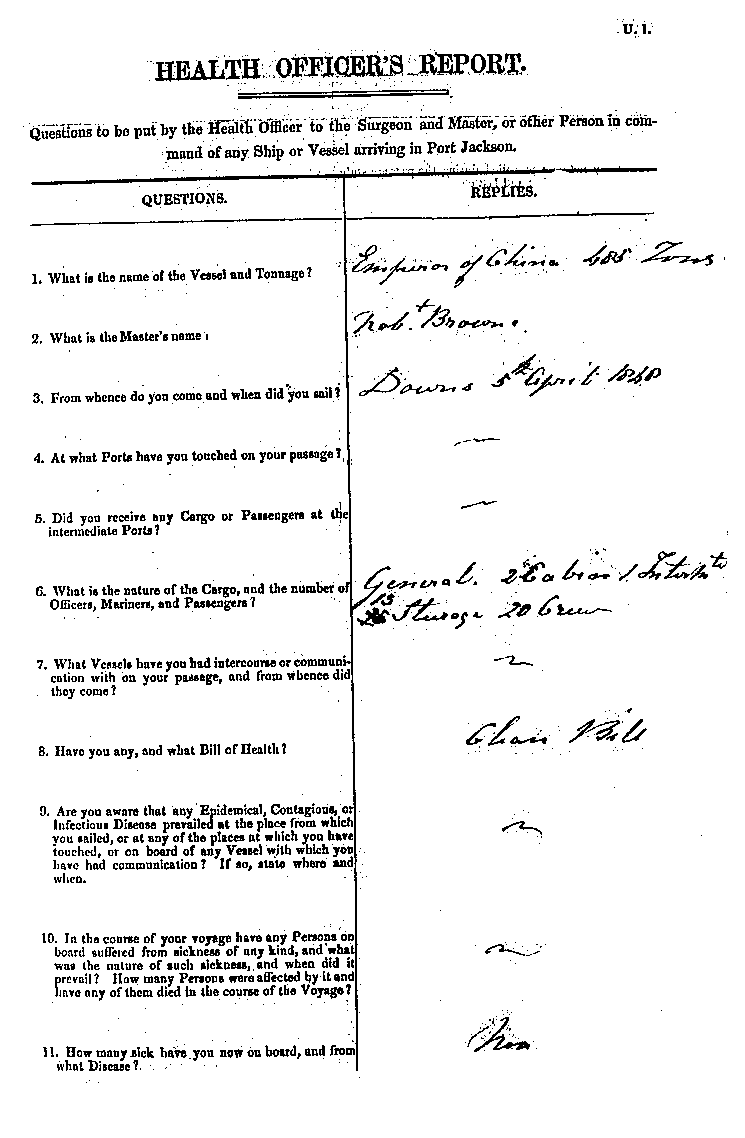 U. 1.
HEALTH OFFICER'S REPORT.
Questions to be put by the Health Officer to the Surgeon and Master, or other Person in com-
mand of any Ship or Vessel arriving in Port Jackson.
QUESTIONS.
REPLIES.
1. What is the name of the Vessel and Tonnage?
Emperor of China 685 Tons
2. What is the Master's name
Robt Brown.
3. From whence do you come and when did you sail?
Downs 5th April 1848
4. At what Ports have you touched on your passage?
5. Did you receive any Cargo or Passengers at the
intermediate Ports?
6. What is the nature of the Cargo, and the number of
Officers, Mariners, and Passengers?
General. 2 Cabin 1
13
Steerage 20 Crew
7. What Vessels have you had intercourse or communi-
cation with on your passage, and from whence did
they come?
8. Have you any, and what Bill of Health?
Clean Bill
9. Are you aware that any Epidemical, Contagious, or
Infectious Disease prevailed at the place from which
you sailed, or at any of the places at which you have
touched, or on board of any Vessel with which you
have had communication? If so, state where and
when.
10. In the course of your voyage have any Persons on
board suffered from sickness of any kind, and what
was the nature of such sickness, and when did it
prevail? How many Persons were affected by it and
have any of them died in the course of the Voyage?
11. How many sick have you now on board, and from
what Disease?